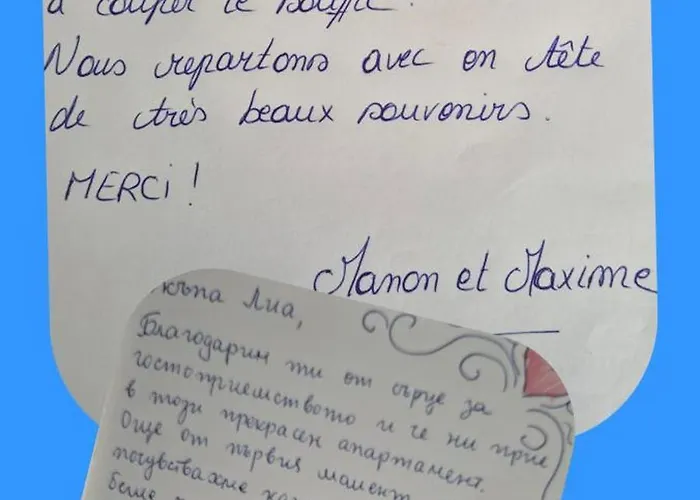 à couper le souffle.
Nous repartons avec en tête
de très beaux souvenirs.
MERCi !
Manon et Maxime
Лиа,
Благодарим ти от сърце за
гостоприемството и че ни прие
в този прекрасен апартамент.
Още от първия момент
почувствахме
беше